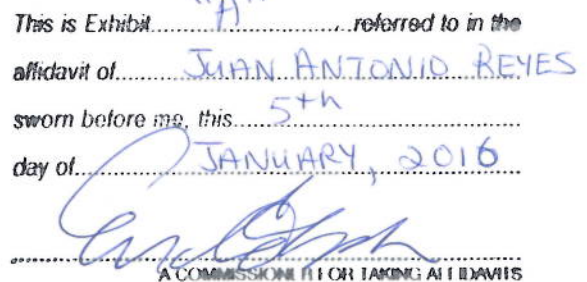 This is Exhibit "A" referred to in the
affidavit of JUAN ANTONIO REYES
sworn before me, this 5th
day of JANUARY, 2016
A COMMISSIONER FOR TAKING AFFIDAVITS